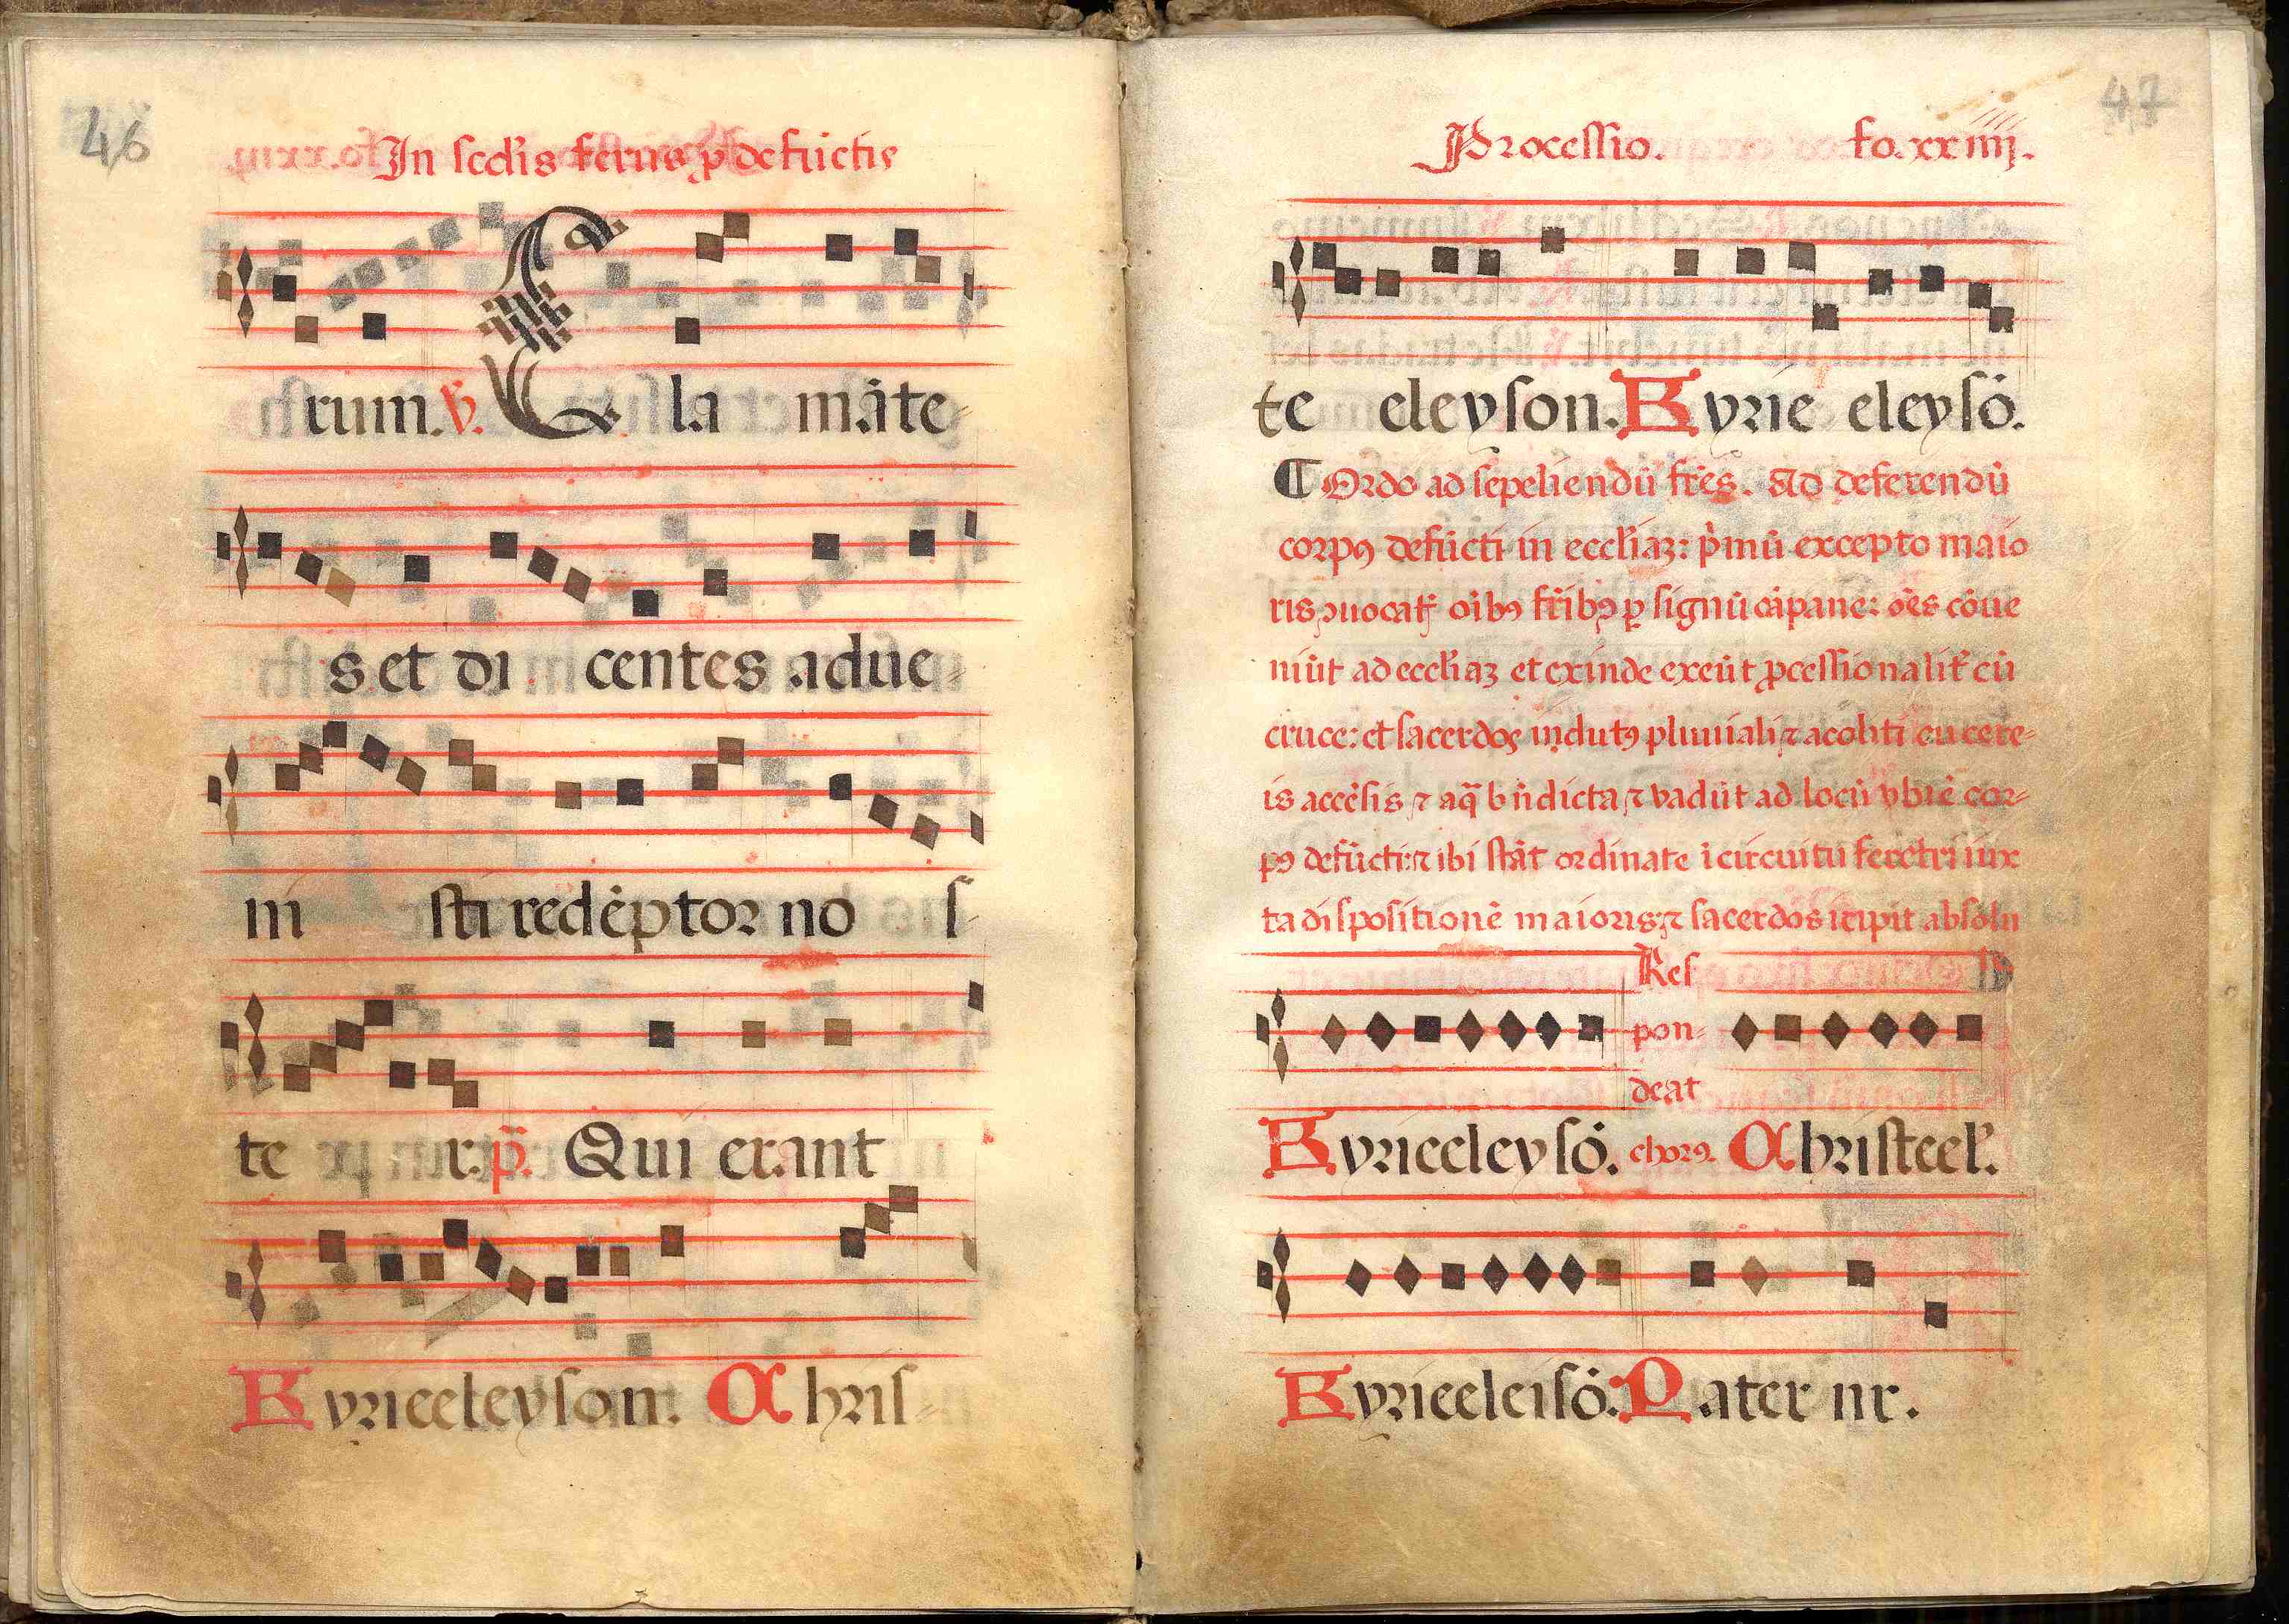 46
In scdi̅s feriis ꝓ defu̅ctis
rum. ℣. Cla mãte-
s et di centes adue-
ni sti redẽptor no s-
te r. p̃. Qui erant
Kyrieeleyson. Chris-
47
Processio. fo. xxiiij.
te eleyson. Kyrie eleysõ.
¶ Ordo ad sepeliendũ fr̃es. Ad deferendũ
corpꝰ defũcti in eccl'iaz: p̾mũ excepto maio
ris ꝯuocat̃ oĩbꝰ fr̃ibꝰ ꝑ signũ cãpane: oẽs cõue
niũt ad eccl'iaz et exinde exeũt ꝓcessionalit̃ cũ
cruce: et sacerdos indutꝰ pluuiali ⁊ acoliti cu cere-
is accẽsis ⁊ aq̃ bñdicta ⁊ vadũt ad locũ vbi ẽ cor-
pꝰ defũcti: ⁊ ibi stãt ordinate ĩ circuitu feretri iux
ta dispositionẽ maioris: ⁊ sacerdos icipit absolu
Res
pon-
deat
Kyrieeleysõ. chorꝰ. Christeel'.
Kyrieeleisõ. Pater nr.